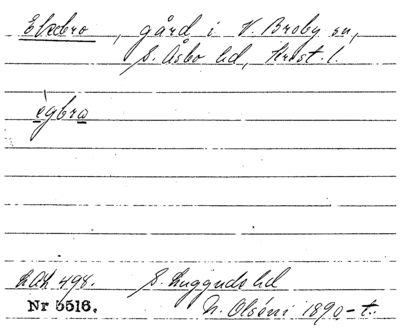 Ekebro, gård i V. Broby sn,
S. Åsbo hd, Krist. l.
ègbra
LAL 498. S. Luggudshd
Nr 5516. N. Olséni 1890-t.